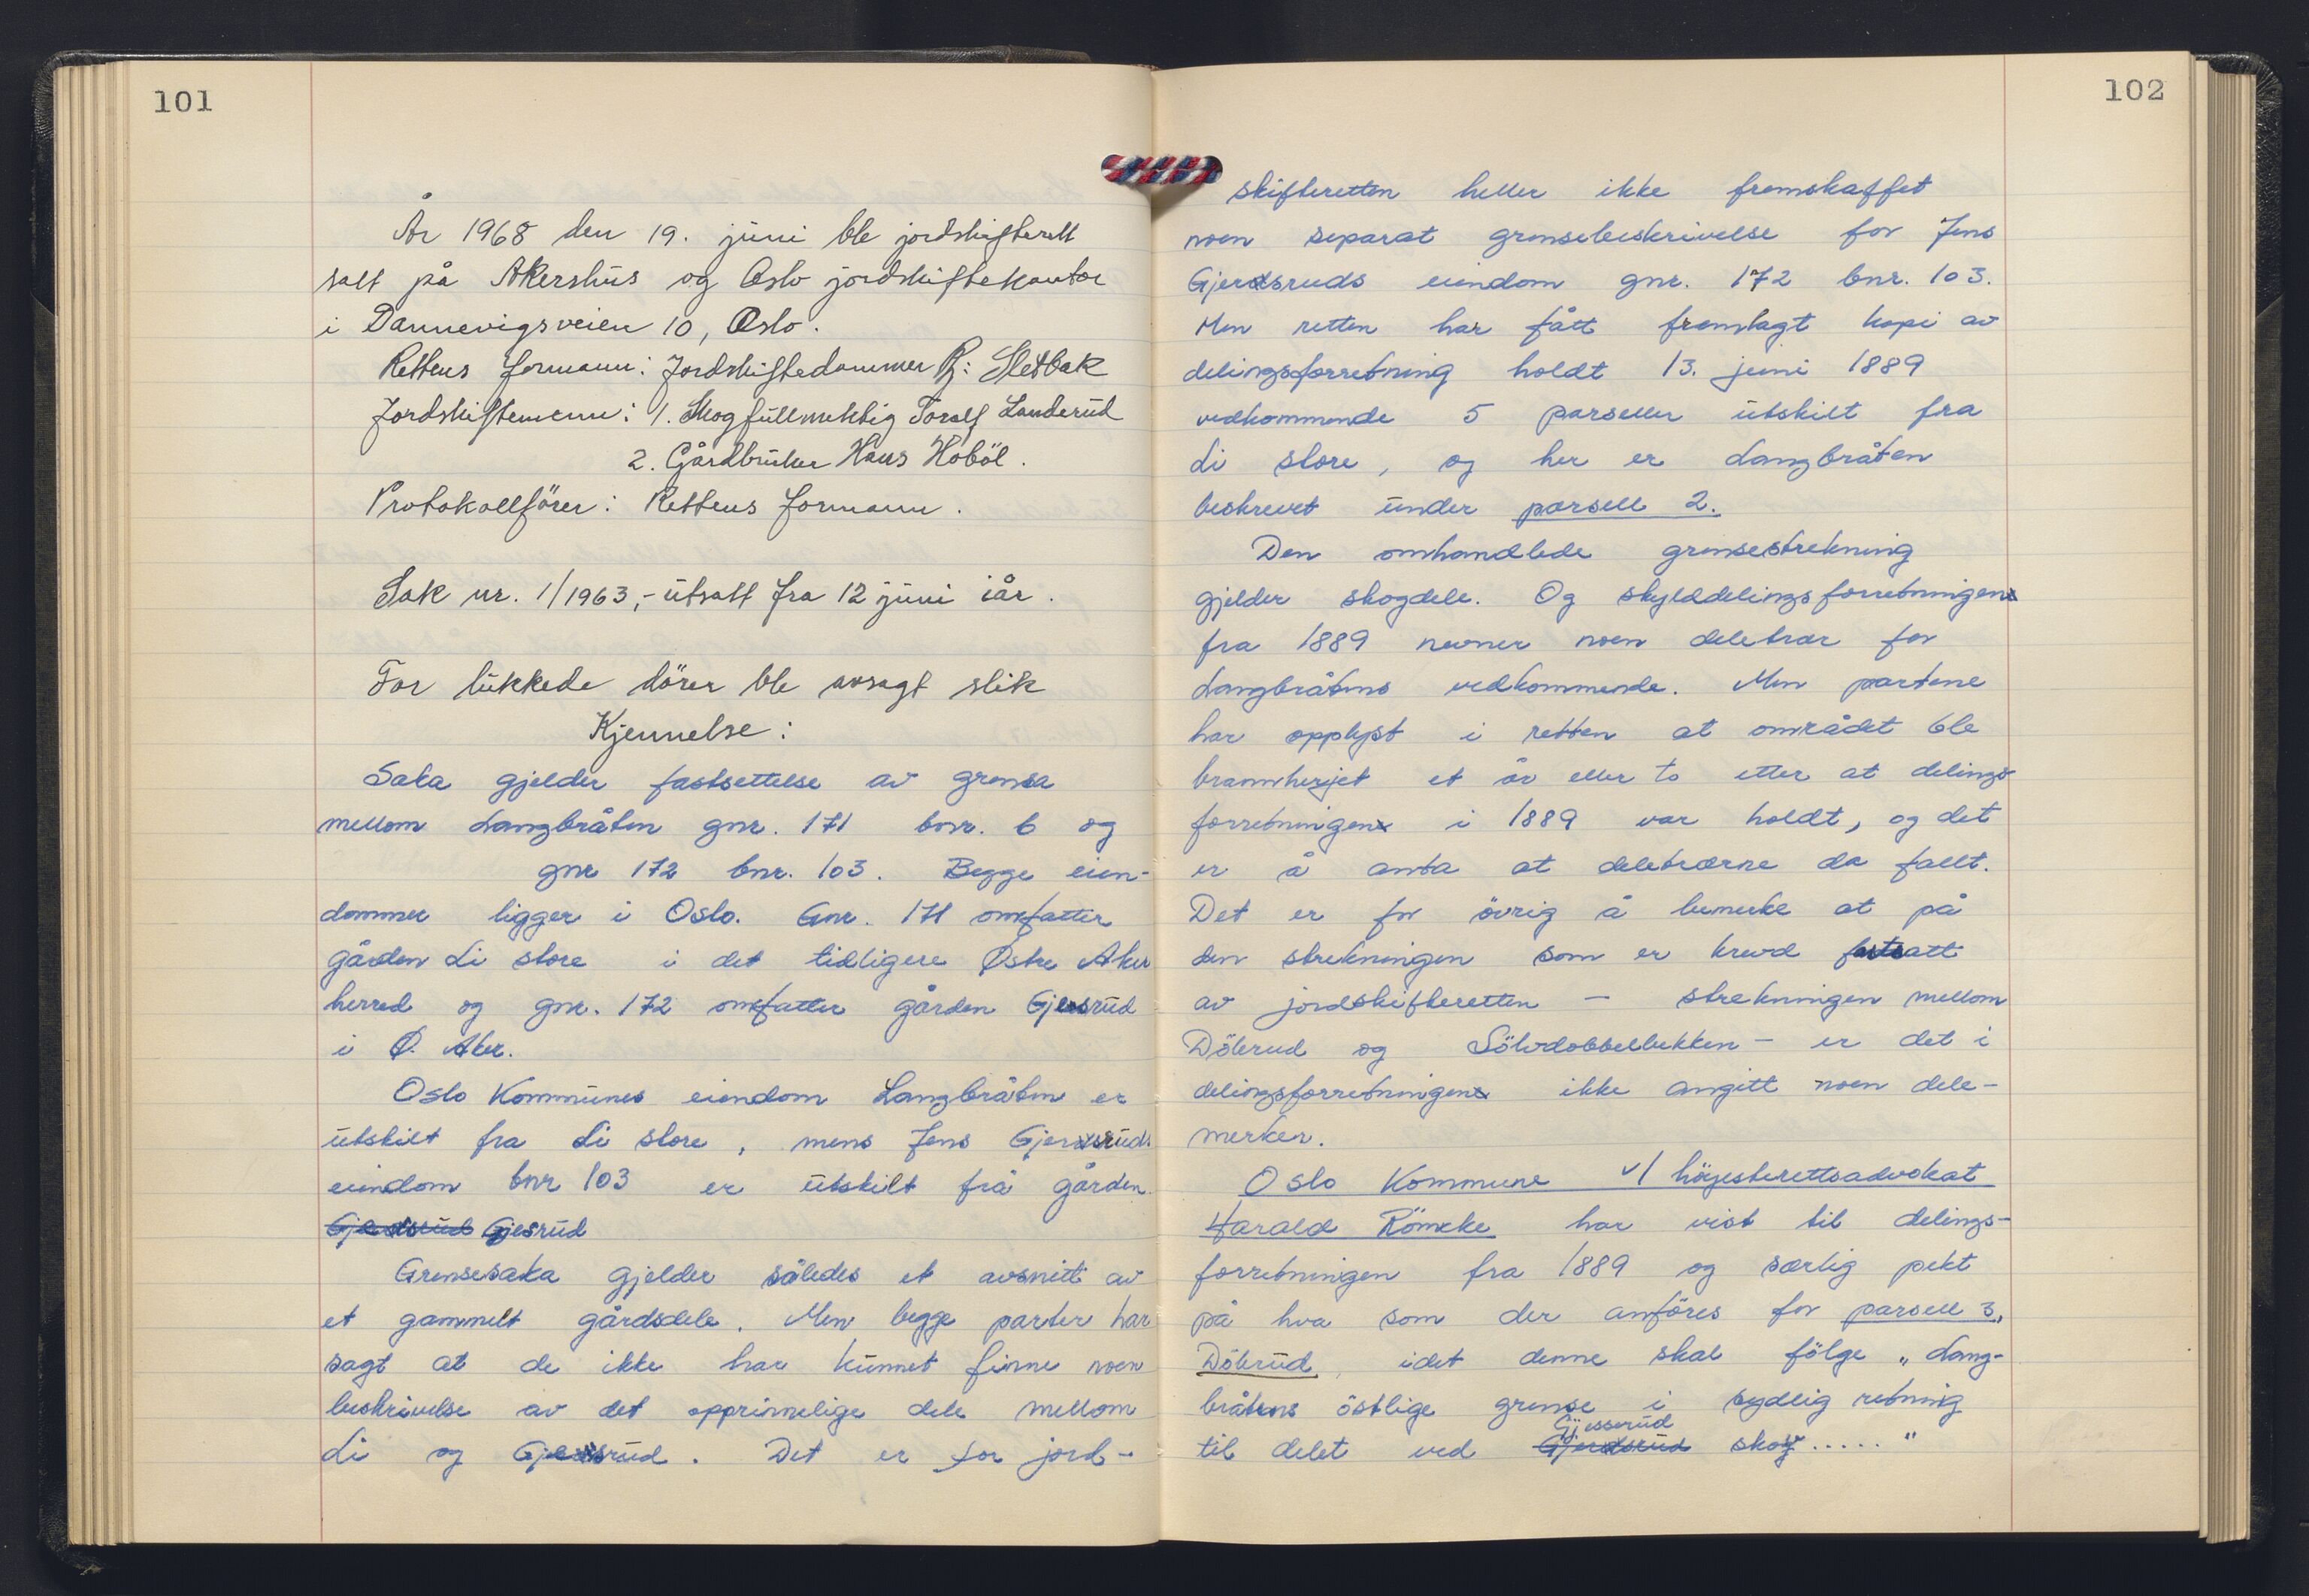 101
År 1968 den 19. juni ble jordskifterett
satt på Akershus og Oslo jordskiftekontor
i Dannevigsveien 10, Oslo.
Rettens formann: Jordskiftedommer R: Sletbak
Jordskiftemenn: 1. Skogfullmektig Toralf Landerud
2. Gårdbruker Hans Höböl.
Protokollförer: Rettens formann.
Sak nr. 1/1963,- utsatt fra 12 juni iår.
For lukkede dörer ble avsagt slik
Kjennelse:
Saka gjelder fastsettelse av grensa
mellom Langbråten gnr. 171 bnr. 6 og
gnr 172 bnr. 103. Begge eien-
dommer ligger i Oslo. Gnr. 171 omfatter
gården Li store i det tidligere Östre Aker
herred og gnr. 172 omfatter gården Gjersrud
i Ö. Aker.
Oslo Kommunes eiendom Langbråten er
utskilt fra Li store, mens Jens Gjersruds
eiendom bnr 103 er utskilt frå gården
Gjerdsrud Gjesrud
Grensesaka gjelder således et avsnitt av
et gammelt gårdsdele. Men begge parter har
sagt at de ikke har kunnet finne noen
beskrivelse av det opprinnelige dele mellom
Li og Gjersrud. Det er for jord-
102
skifteretten heller ikke fremskaffet
noen separat grensebeskrivelse for Jens
Gjerdsruds eiendom gnr. 172 bnr. 103.
Men retten har fått fremlagt kopi av
delingsforretning holdt 13. juni 1889
vedkommende 5 parseller utskilt fra
Li store, og her er Langbråten
beskrevet under parsell 2.
Den omhandlede grensestrekning
gjelder skogdele. Og skylddelingsforretningen
fra 1889 nevner noen deletrær for
Langbråtens vedkommende. Men partene
har opplyst i retten at området ble
brannherjet et år eller to etter at delings-
forretningen i 1889 var holdt, og det
er å anta at deletrærne da fallt.
Det er for övrig å bemerke at på
den strekningen som er krevd fastsatt
av jordskifteretten – strekningen mellom
Dölerud og Sölvdobbelbekken – er det i
delingsforretningen ikke angitt noen dele-
merker.
Oslo Kommune v/ höyesterettsadvokat
Harald Römcke har vist til delings-
forretningen fra 1889 og særlig pekt
på hva som der anföres for parsell 3,
Dölerud, idet denne skal fölge „Lang-
bråtens östlige grense i sydlig retning
til delet ved Gjerdsrud Gjesserud skog....."